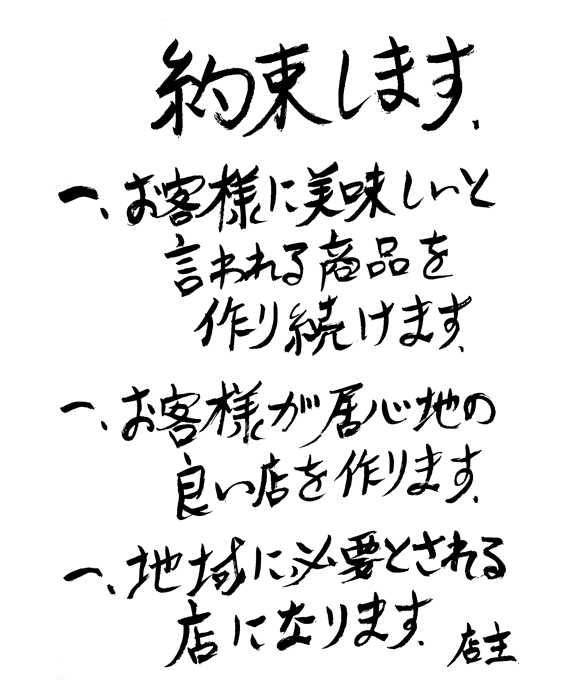 約束します.
一、お客様に美味しいと
言われる商品を
作り続けます.
一、お客様が居心地の
良い店を作ります.
一、地域に必要とされる
店になります.
店主